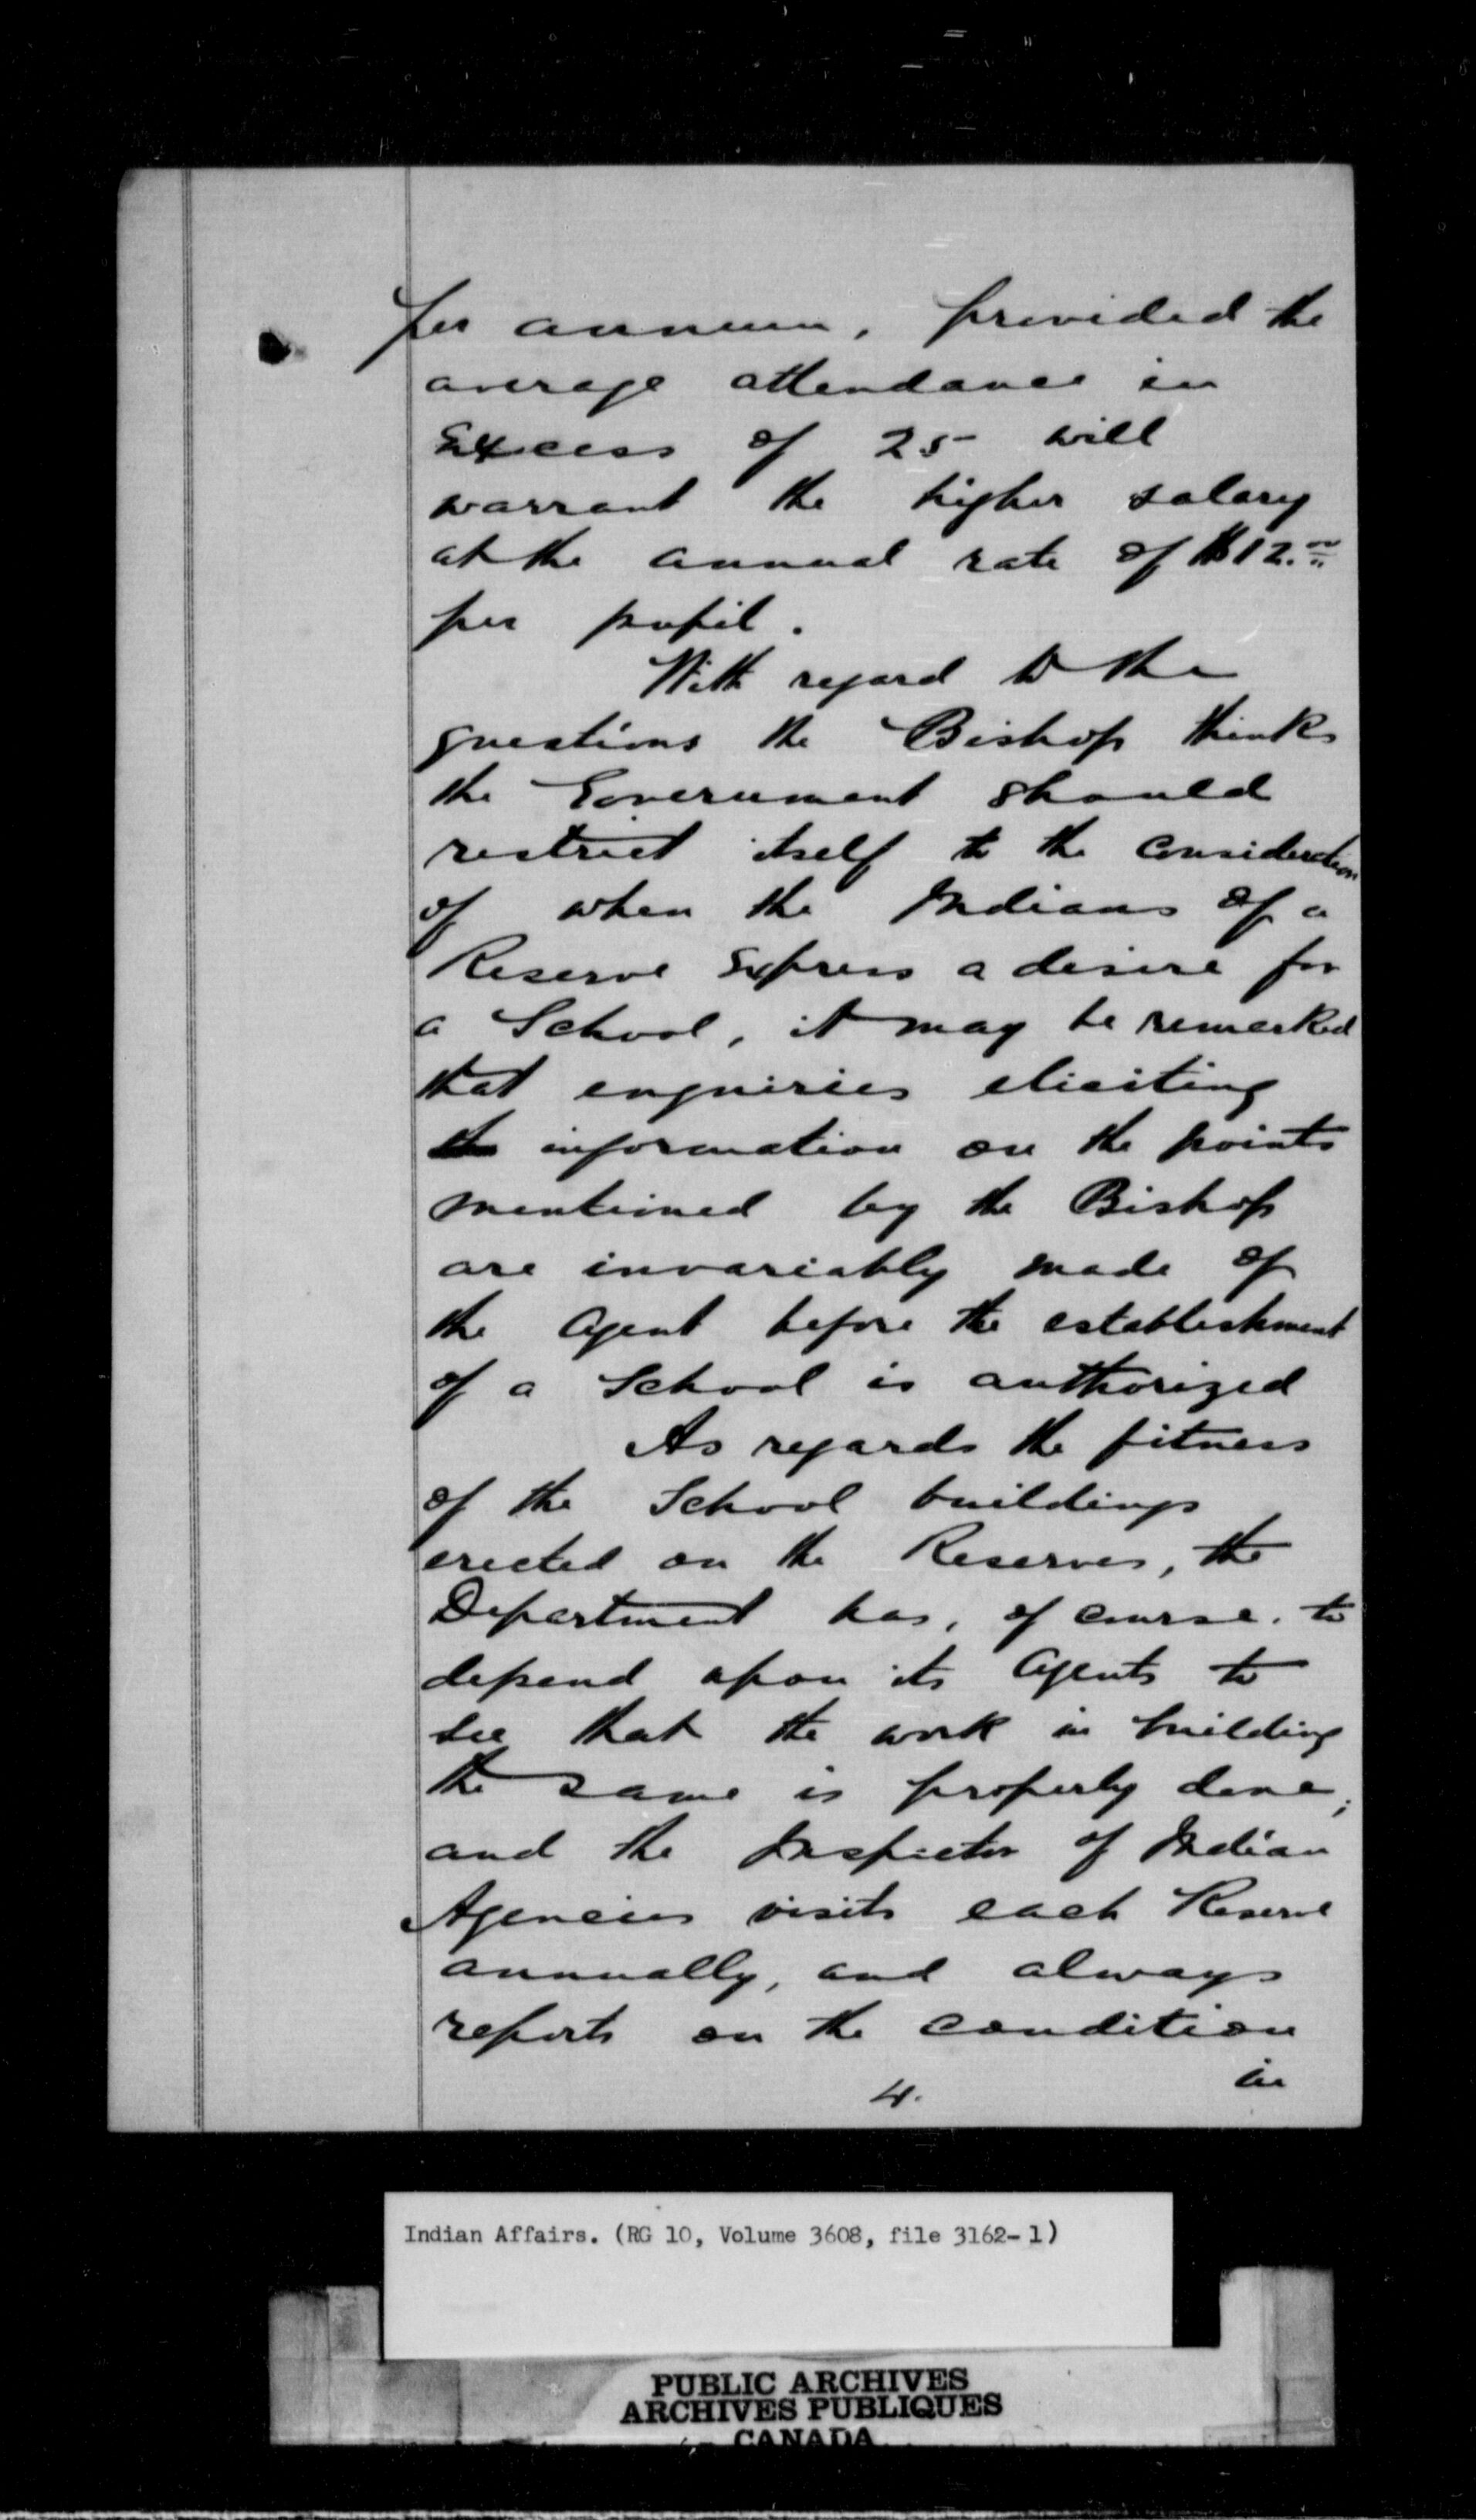 per annum, provided the
average attendance in
Excess of 25 will
warrant the higher salary
at the annual rate of $12.00
per pupil.
With regard to the
questions the Bishop thinks
the Government should
restrict itself to the consideration
of when the Indians of a
Reserve Express a desire for
a School, it may be remarked
that enquiries eliciting
the information on the points
mentioned by the Bishop
are invariably made of
the Agent before the establishment
of a School is authorized
As regards the fitness
of the School buildings
erected on the Reserves, the
Department has, of course, to
depend upon its Agents to
see that the work in building
the same is properly done;
and the Inspector of Indian
Agencies visits each Reserve
annually, and always
reports on the condition
in
4.
Indian Affairs. (RG 10, Volume 3608, file 3162-1)
PUBLIC ARCHIVES
ARCHIVES PUBLIQUES
CANADA